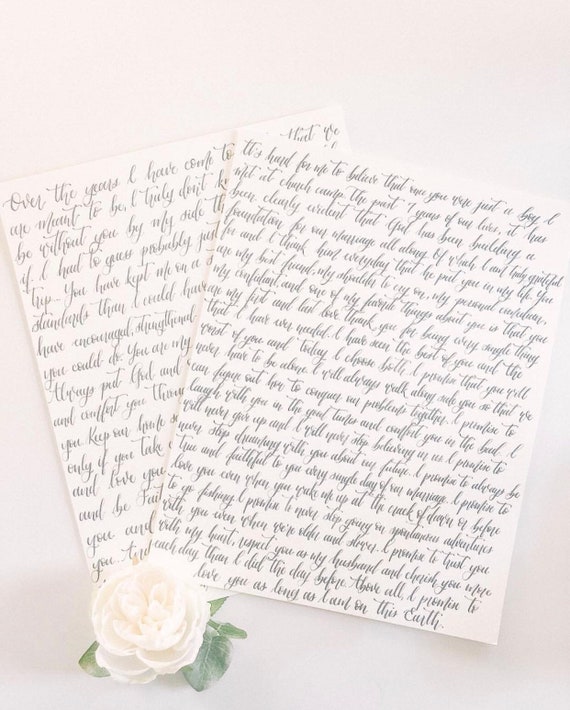 Over the years I have come to
that we
are meant to be, I truly don't
be without you by my side th
if I had to guess probably just
trip... You have kept me on a
standards than I could have
have encouraged, strengthened
you could do. You are my
Always put God and
and comfort you throug
you. Keep our home s
only if you take
and love you
and be Fai
you and
you and
It's hard for me to believe that once you were just a boy I
met at church camp. The past 7 years of our lives, it has
been clearly evident that God has been building a
foundation for our marriage all along. Of which I am truly grateful
for and I thank him everyday that he put you in my life. You
are my best friend, my shoulder to cry on, my personal comedian,
my confidant, and one of my favorite things about you is that you
are my first and last love. Thank you for being every single thing
that I have ever needed. I have seen the best of you and the
worst of you and today I choose both. I promise that you will
never have to be alone. I will always walk along side you so that we
can figure out how to conquer our problems together. I promise to
laugh with you in the good times and comfort you in the bad. I
will never give up and I will never stop believing in us. I promise to
never stop dreaming with you about our future. I promise to always be
true and faithful to you every single day of our marriage. I promise to
love you even when you wake me up at the crack of dawn or before
to go fishing. I promise to never stop going on spontaneous adventures
with you even when we're older and slower. I promise to trust you
with my heart, respect you as my husband and cherish you more
each day than I did the day before. Above all, I promise to
love you as long as I am on this Earth.